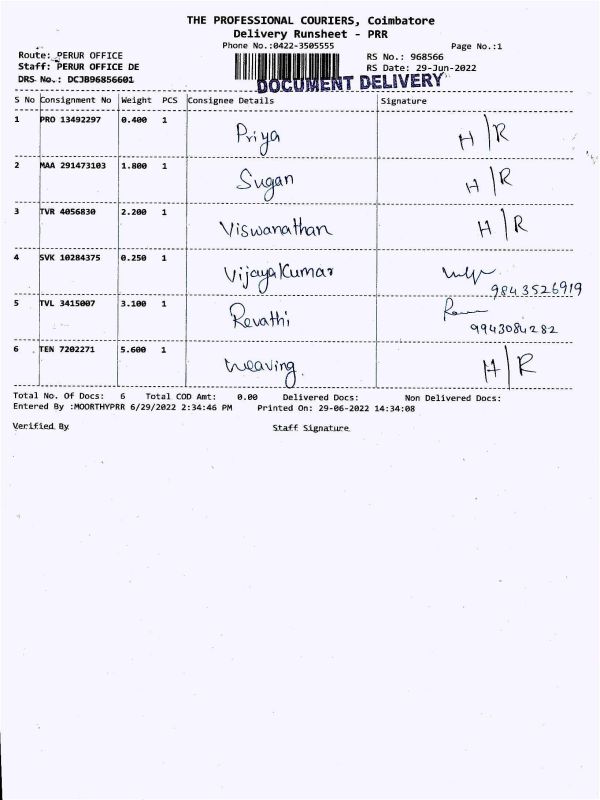 THE PROFESSIONAL COURIERS, Coimbatore
Delivery Runsheet - PRR
Phone No.:0422-3505555 Page No.:1
Route: PERUR OFFICE RS No.: 968566
Staff: PERUR OFFICE DE RS Date: 29-Jun-2022
DRS No.: DCJB96856601 DOCUMENT DELIVERY
S No Consignment No Weight PCS Consignee Details Signature
1 PRO 13492297 0.400 1 Priya H/R
2 MAA 291473103 1.800 1 Sugan H/R
3 TVR 4056830 2.200 1 Viswanathan H/R
4 SVK 10284375 0.250 1 Vijaya Kumar
9843526919
5 TVL 3415007 3.100 1 Revathi
9943084282
6 TEN 7202271 5.600 1 Weaving H/R
Total No. Of Docs: 6 Total COD Amt: 0.00 Delivered Docs: Non Delivered Docs:
Entered By :MOORTHYPRR 6/29/2022 2:34:46 PM Printed On: 29-06-2022 14:34:08
Verified By Staff Signature